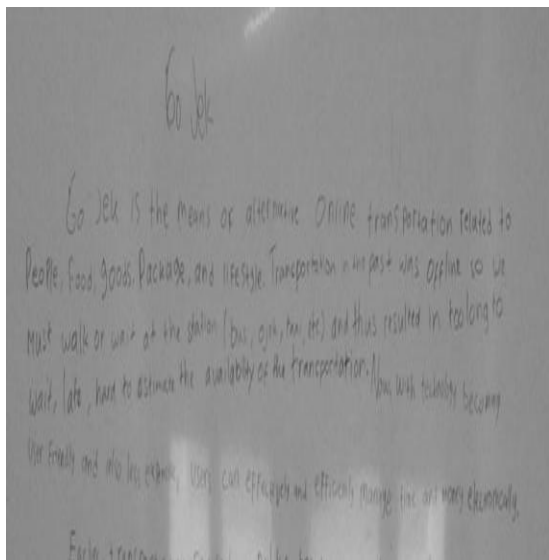 Go Jek
Go Jek is the means of alternative Online transportation related to
People, Food, goods, Package, and lifestyle. Transportation in the past was offline so we
Must walk or wait at the station (bus, ojek, taxi, etc) and thus resulted in too long to
wait, late, hard to estimate the availability of the transportation. Now with technology becoming
User Friendly and also less expensive, users can effectively and efficiently manage time and money electronically.